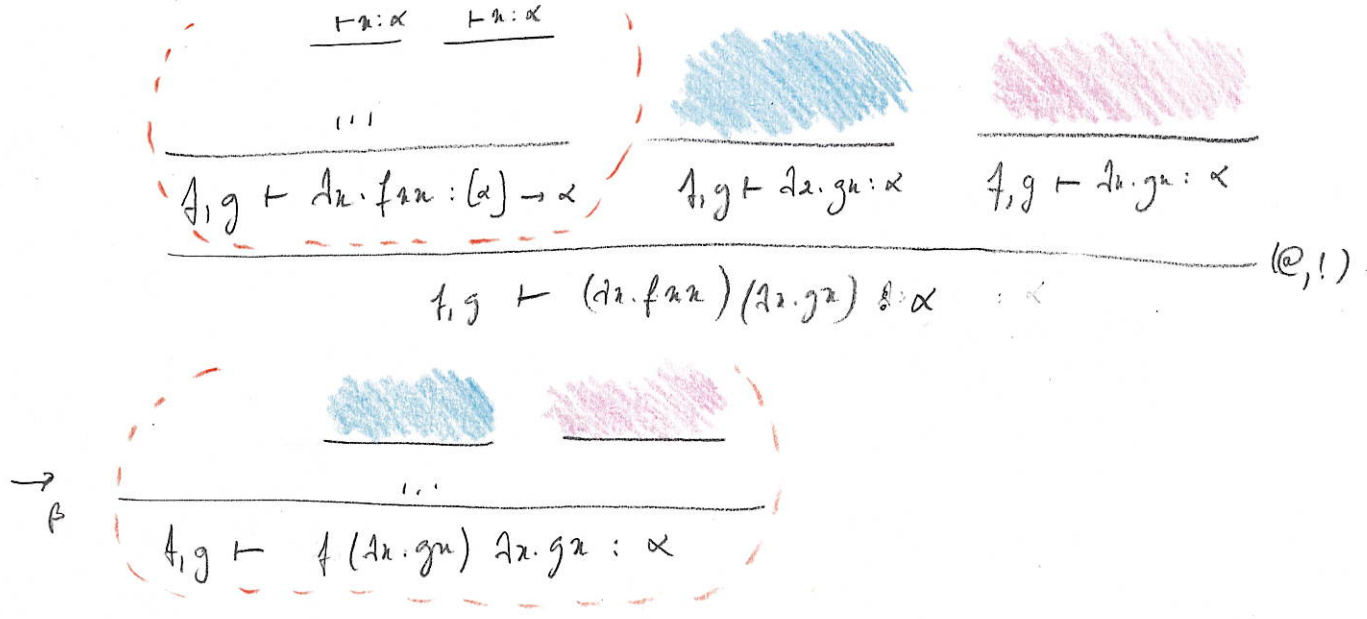 ⊢ x : α ⊢ x : α
...
f, g ⊢ λx. fxx : [α] → α f, g ⊢ λx. gx : α f, g ⊢ λx. gx : α
(@, !)
f, g ⊢ (λx. fxx) (λx. gx) : α : α
...
→β
f, g ⊢ f (λx. gx) λx. gx : α